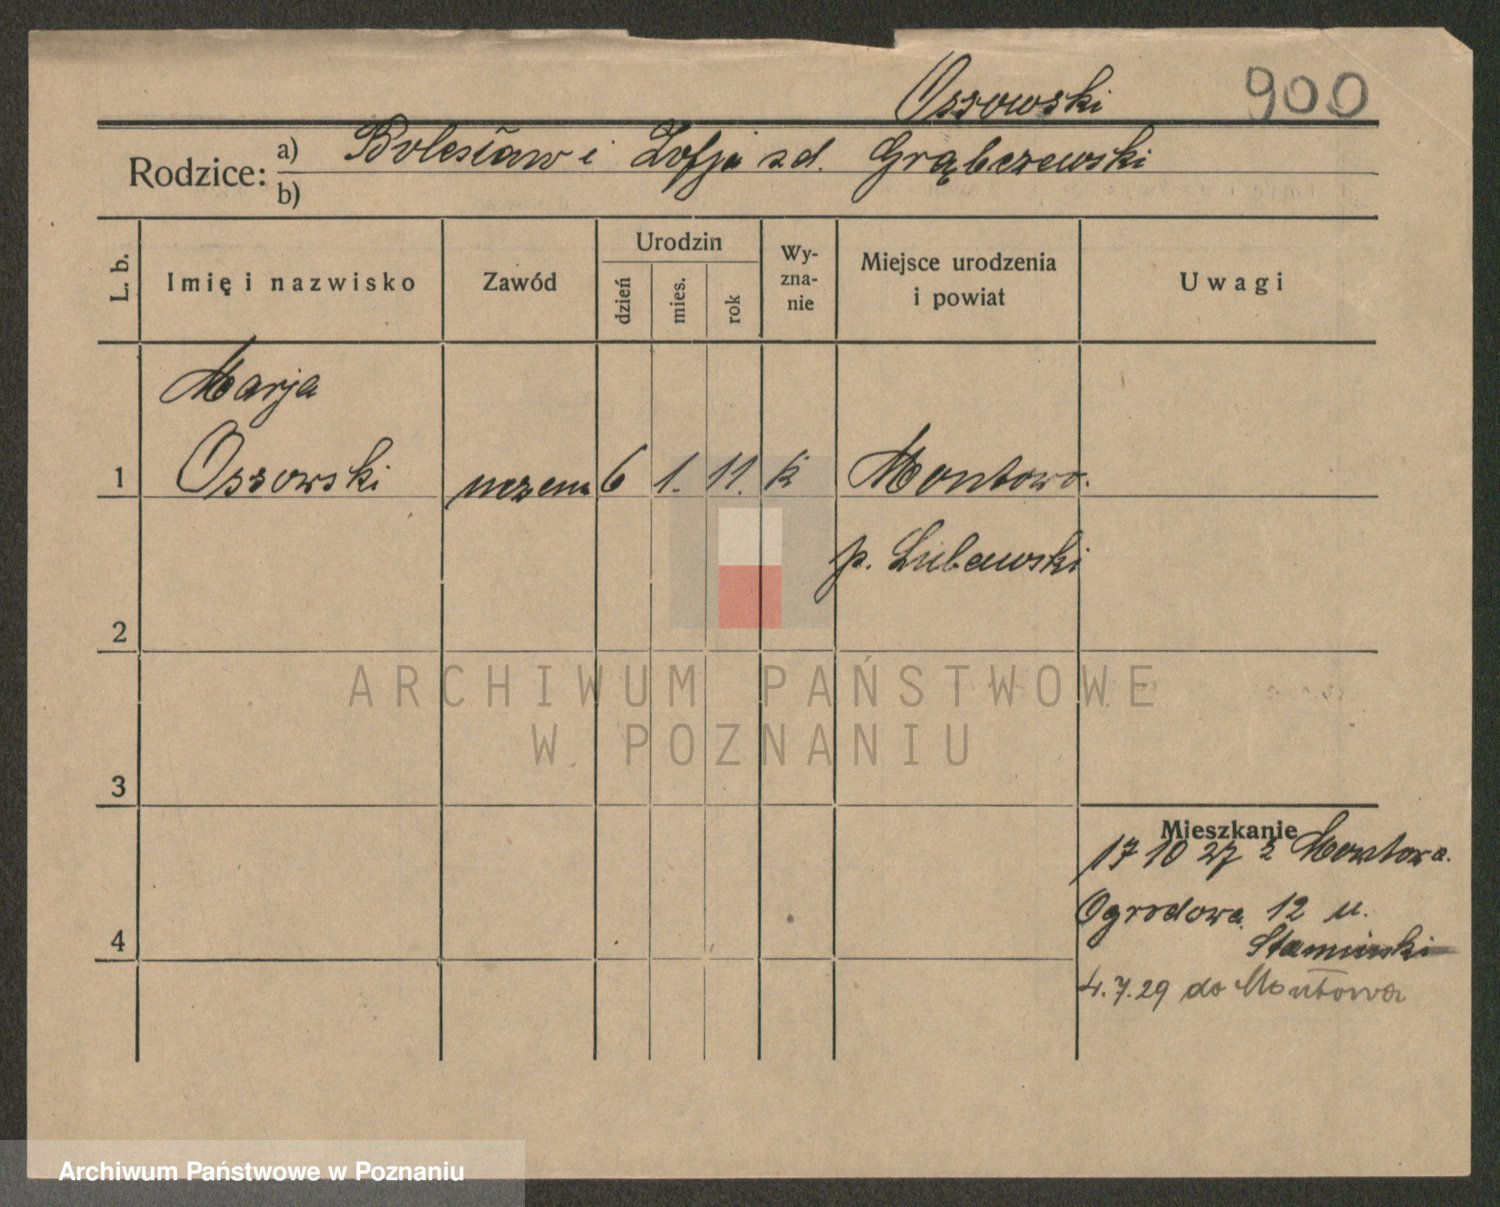 Ossowski 900
Rodzice: a) Bolesław i Zofja zd. Grąbczewski
b)
L. b. Imię i nazwisko Zawód Urodzin dzień mies. rok Wy-
zna-
nie Miejsce urodzenia
i powiat Uwagi
Marja
1 Ossowski uczenn 6 1. 11. K Montowo.
p. Lubawski
2
ARCHIWUM PAŃSTWOWE
W POZNANIU
3
Mieszkanie
17 10 27 z Montowa.
Ogrodowa 12 u.
4
4.7.29 do Montowa
Archiwum Państwowe w Poznaniu